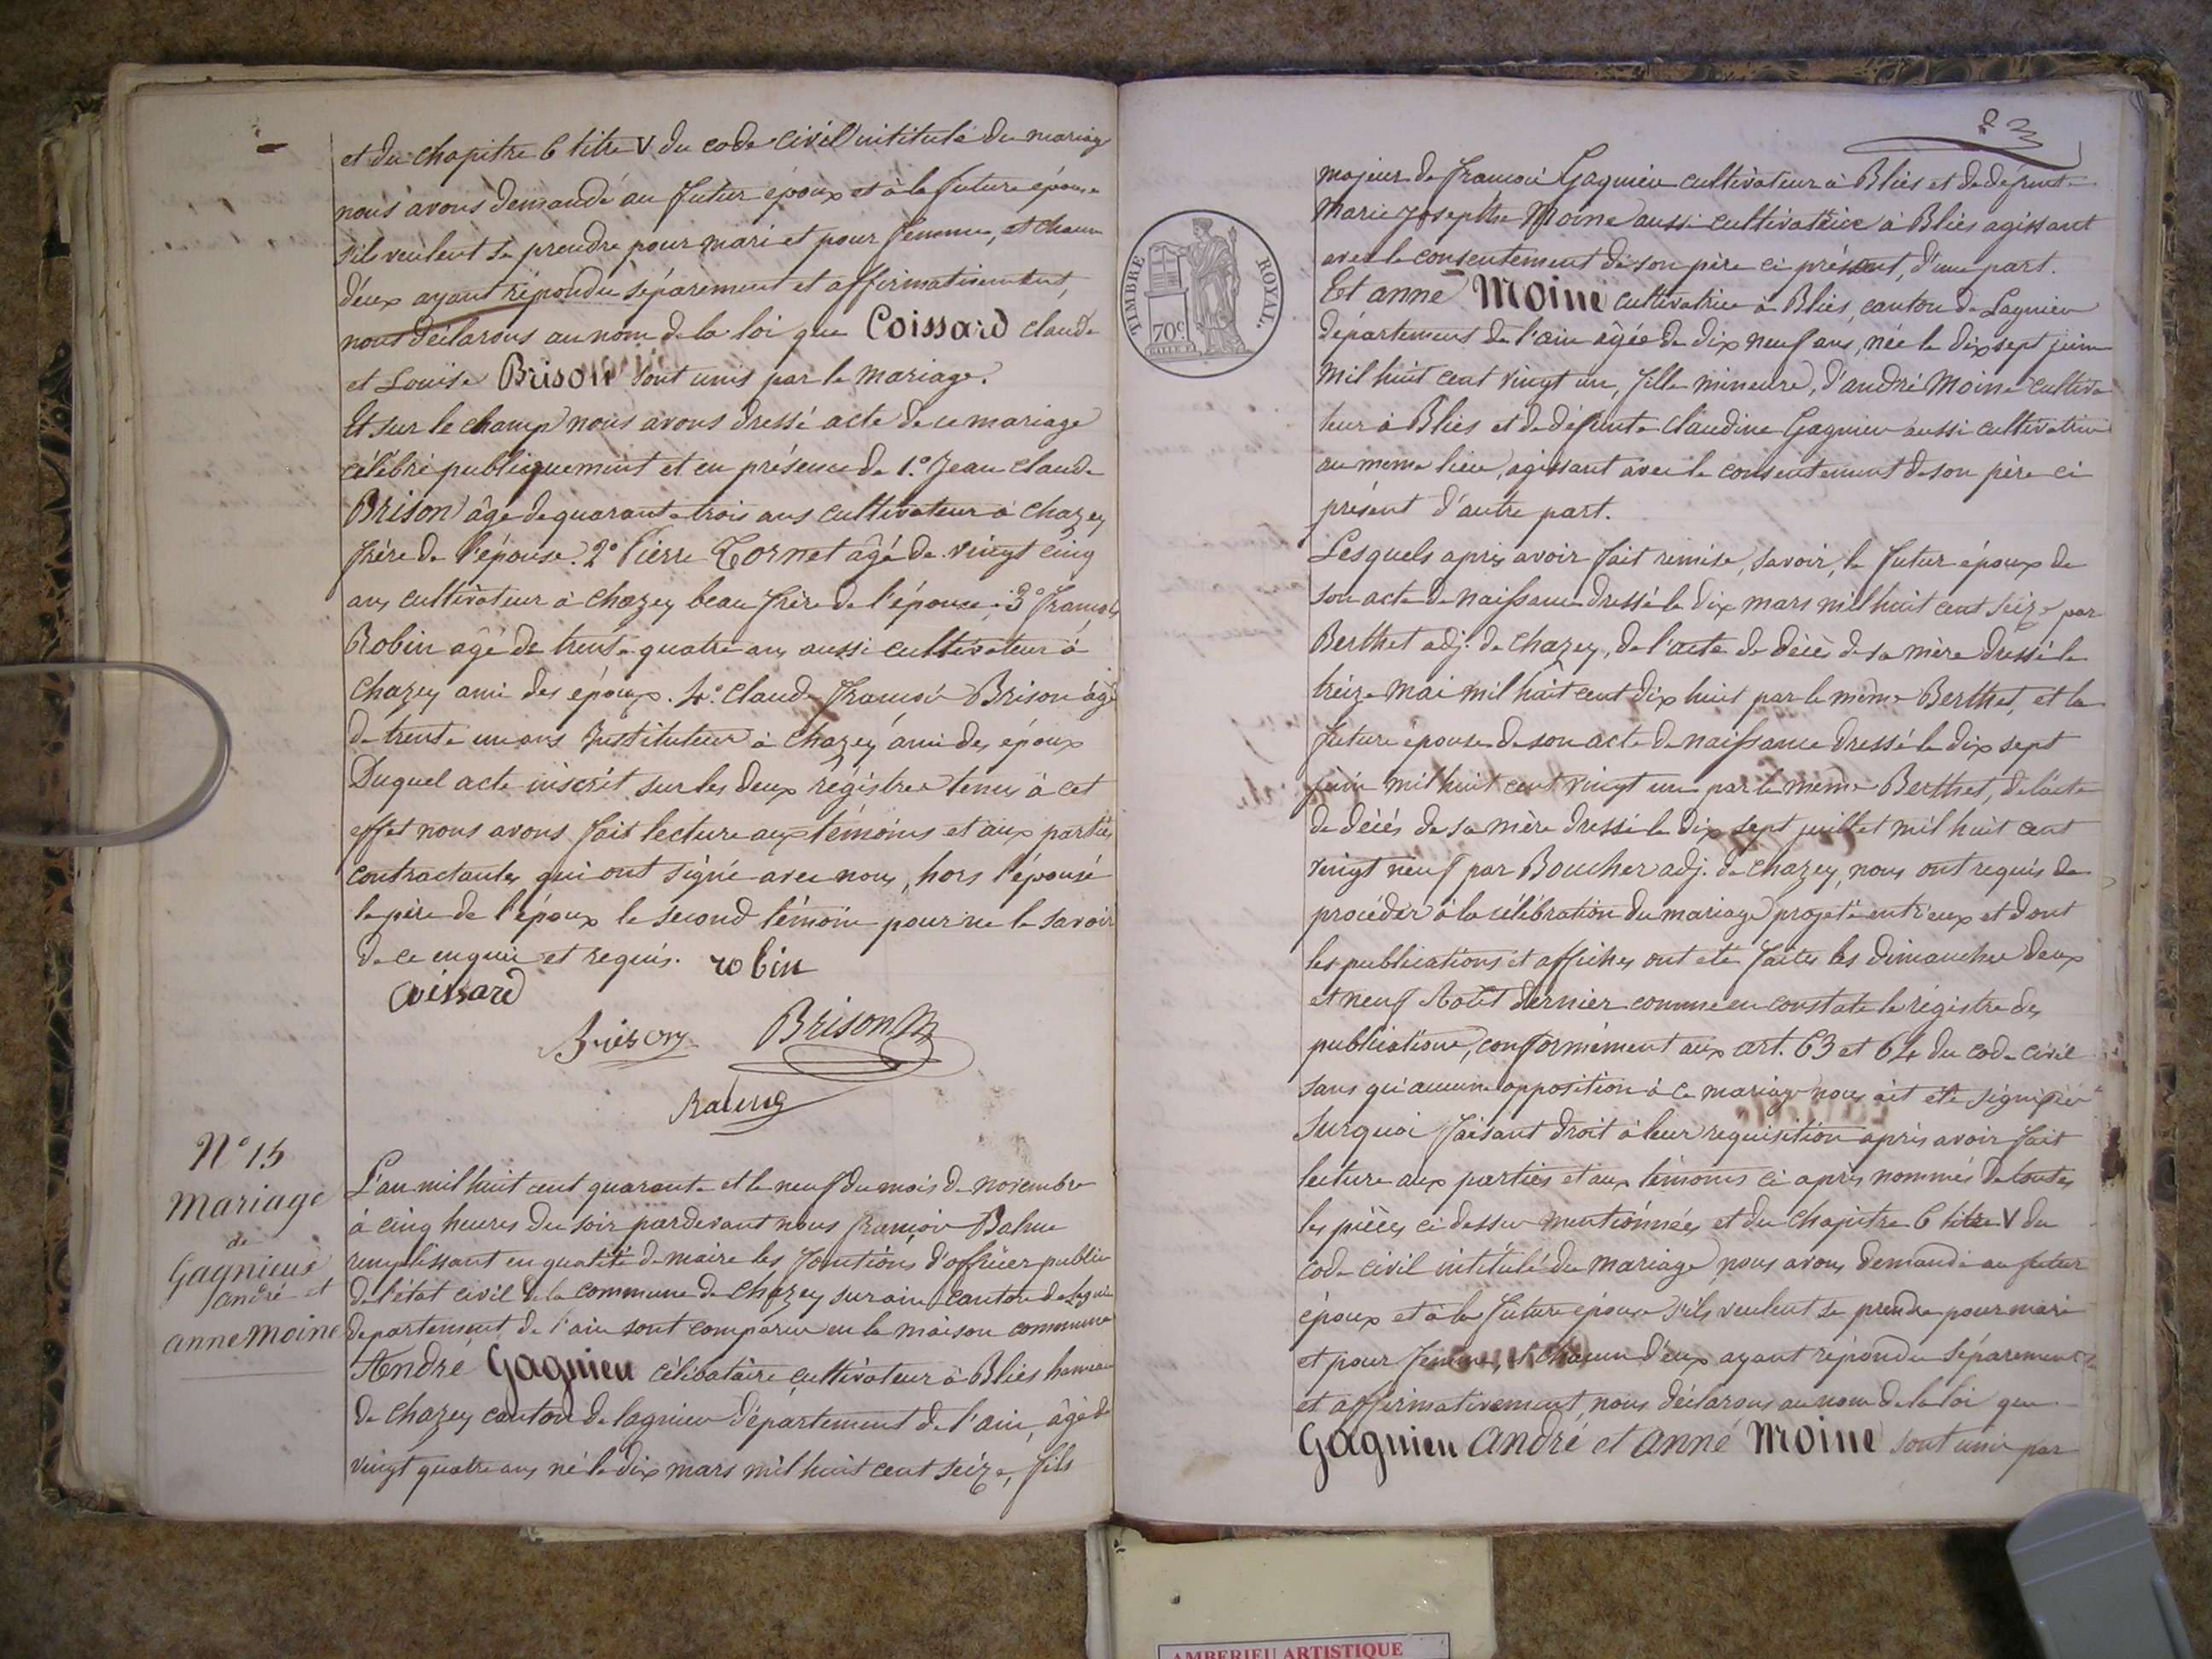 et du chapitre 6 titre V du code civil intitulé du mariage
nous avons demandé au futur époux et à la future épouse
s'ils veulent se prendre pour mari et pour femme, et chacun
d'eux ayant répondu séparement et affirmativement,
nous déclarons au nom de la loi que Coissard claude
et Louise Brison sont unis par le mariage.
Et sur le champ nous avons dressé acte de ce mariage
célébré publiquement et en présence de 1.° Jean claude
Brison âgé de quarante trois ans cultivateur à Chazey
frère de l'épouse. 2° Pierre Cornet âgé de vingt cinq
ans cultivateur à Chazey beau frère de l'épouse. 3° François
Robin âgé de trente quatre ans aussi cultivateur à
Chazey ami des époux. 4.° claude François Brison âgé
de trente un ans Instituteur à Chazey ami des époux
Duquel acte inscrit sur les deux régistres tenus à cet
effet nous avons fait lecture aux témoins et aux parties
contractantes qui ont signé avec nous, hors l'épouse
le père de l'époux le second témoin pour ne le savoir
de ce enquis et requis. robin
Coissard
Brison Brison
N° 15
Mariage
de
Gagnieue
andré et
anne Moine
L'an mil huit cent quarante et le neuf du mois de novembre
à cinq heures du soir pardevant nous françois
remplissant en qualité de maire les fonctions d'officier public
de l'état civil de la commune de Chazey sur ain canton de Lagnieu
departement de l'ain sont comparus en la maison commune
André Gagnieu célibataire cultivateur à Blies hameau
de Chazey canton de lagnieu département de l'ain, âgé de
vingt quatre ans né le dix mars mil huit cent seize, fils
23
majeur de francois Gagnieu cultivateur à Blies et de défunte
Marie Josephte Moine aussi cultivatrice à Blies agissant
avec le consentement de son père ci présent, d'une part.
Et anne Moine cultivatrice à Blies, canton de Lagnieu
département de l'ain âgée de dix neuf ans, née le dix sept juin
mil huit cent vingt un, fille mineure, d'andré Moine cultiva
teur à Blies et de défunte claudine Gagnieu aussi cultivatrice
au meme lieu, agissant avec le consentement de son père ci
présent d'autre part.
Lesquels après avoir fait remise, savoir, le futur époux de
son acte de naissance dressé le dix mars mil huit cent seize par
Berthet adj. de Chazey, de l'acte de décès de sa mère dressé le
treize mai mil huit cent dix huit par le même Berthet, et la
future épouse de son acte de naissance dressé le dix sept
juin mil huit cent vingt un par le même Berthet, de l'acte
de décès de sa mère dressé le dix sept juillet mil huit cent
vingt neuf par Boucher adj. de Chazey, nous ont requis de
procéder à la célébration du mariage projeté entr'eux et dont
les publications et affiches ont été faites les dimanches deux
et neuf Août dernier comme en constate le régistre des
publications, conformément aux art. 63 et 64 du code civil
sans qu'aucune opposition à ce mariage nous ait été signifiée
Surquoi faisant droit à leur requisition après avoir fait
lecture aux parties et aux témoins ci après nommés de toutes
les pièces ci dessus mentionnées et du chapitre 6 titre V du
code civil intitulé du mariage nous avons demandé au futur
époux et à la future épouse s'ils veulent se prendre pour mari
et pour femme, et chacun d'eux ayant répondu séparement
et affirmativement, nous déclarons au nom de la loi que
Gagnieu andré et anne Moine sont unis par
TIMBRE ROYAL.
70c.
AMBERIEU ARTISTIQUE